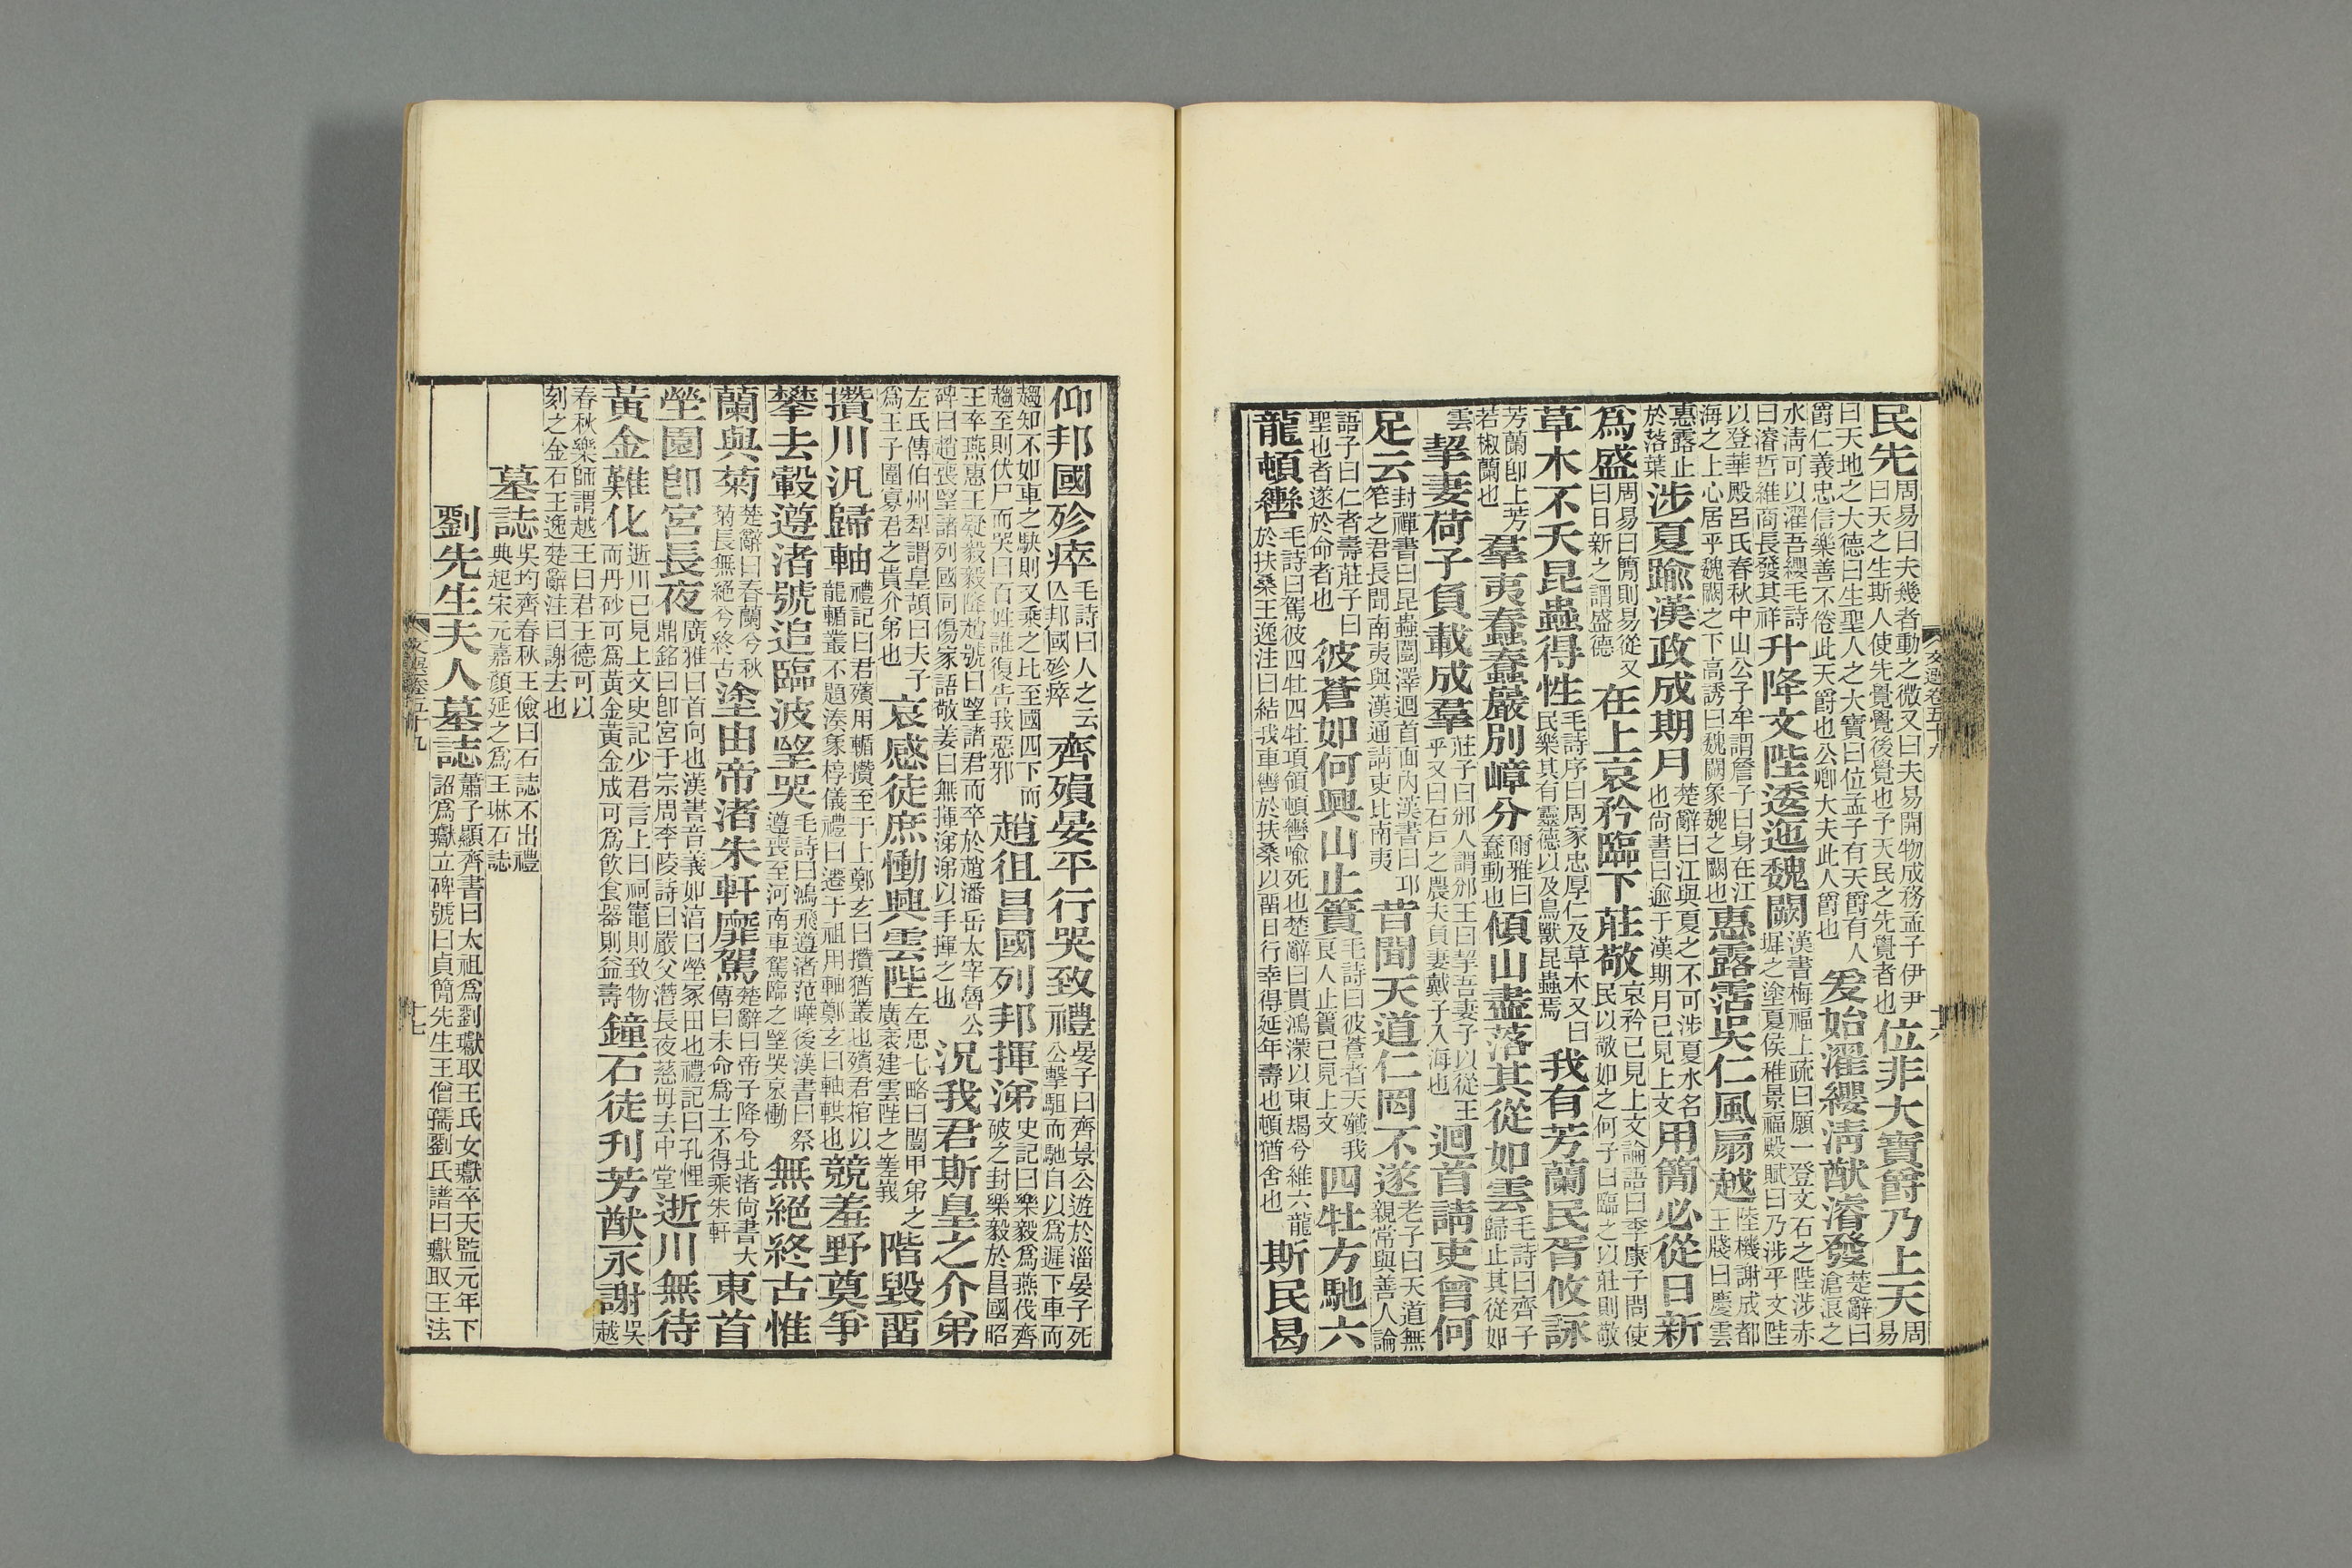 民先周易曰夫幾者動之微又曰夫易開物成務孟子伊尹曰天之生斯人使先覺覺後覺也予天民之先覺者也位非大寶爵乃上天周易
曰天地之大德曰生聖人之大寶曰位孟子有天爵有人爵仁義忠信樂善不倦此天爵也公卿大夫此人爵也爰始濯纓清猷濬發楚辭曰滄浪之
水清可以濯吾纓毛詩曰濬哲維商長發其祥升降文陛逶迤魏闕漢書梅福上疏曰願一登文石之陛涉赤墀之塗夏侯稚景福殿賦曰乃涉乎文陛
以登華殿呂氏春秋中山公子牟謂詹子曰身在江海之上心居乎魏闕之下高誘曰魏闕象魏之闕也惠露沾吳仁風扇越陸機謝成都王牋曰慶雲
惠露止於落葉涉夏踰漢政成期月楚辭曰江與夏之不可涉夏水名也尚書曰逾于漢期月已見上文用簡必從日新
爲盛周易曰簡則易從又曰日新之謂盛德在上哀矜臨下莊敬哀矜已見上文論語曰季康子問使民以敬如之何子曰臨之以莊則敬
草木不夭昆蟲得性毛詩序曰周家忠厚仁及草木又曰民樂其有靈德以及鳥獸昆蟲焉我有芳蘭民胥攸詠
芳蘭卽上芳若椒蘭也羣夷蠢蠢巖別嶂分爾雅曰蠢動也傾山盡落其從如雲毛詩曰齊子歸止其從如
雲挈妻荷子負載成羣莊子曰邠人謂邠王曰挈吾妻子以從王乎又曰石戶之農夫負妻戴子入海也迴首請吏曾何
足云封禪書曰昆蟲闓澤迴首面內漢書曰邛筰之君長聞南夷與漢通請吏比南夷昔聞天道仁罔不遂老子曰天道無親常與善人論
語子曰仁者壽莊子曰聖也者遂於命者也彼蒼如何興山止簣毛詩曰彼蒼者天殲我良人止簣已見上文四牡方馳六
龍頓轡毛詩曰駕彼四牡四牡項領頓轡喻死也楚辭曰貫鴻濛以東朅兮維六龍於扶桑王逸注曰結我車轡於扶桑以留日行幸得延年壽也頓猶舍也斯民曷
文選卷五十九
十六
仰邦國殄瘁毛詩曰人之云亡邦國殄瘁齊殞晏平行哭致禮晏子曰齊景公遊於淄晏子死公擊馹而馳自以爲遲下車而
趨知不如車之駃則又乘之比至國四下而趨至則伏尸而哭曰百姓誰復告我惡邪趙徂昌國列邦揮涕史記曰樂毅爲燕伐齊破之封樂毅於昌國昭
王卒燕惠王疑毅毅降趙號曰望諸君而卒於趙潘岳太宰魯公碑曰趙喪望諸列國同傷家語敬姜曰無揮涕涕以手揮之也況我君斯皇之介弟
左氏傳伯州犁謂皇頡曰夫子爲王子圍寡君之貴介弟也哀感徒庶慟興雲陛左思七略曰閶甲弟之廣袤建雲陛之嵳峩階毀留
攢川汎歸軸禮記曰君殯用輴攢至于上鄭玄曰攢猶叢也殯君棺以龍輴叢不題湊象椁儀禮曰遷于祖用軸鄭玄曰軸輁也競羞野奠爭
攀去轂遵渚號追臨波望哭毛詩曰鴻飛遵渚范曄後漢書曰祭遵喪至河南車駕臨之望哭哀慟無絕終古惟
蘭與菊楚辭曰春蘭兮秋菊長無絕兮終古塗由帝渚朱軒靡駕楚辭曰帝子降兮北渚尚書大傳曰未命爲士不得乘朱軒東首
塋園卽宮長夜廣雅曰首向也漢書音義如淳曰塋冢田也禮記曰孔悝鼎銘曰卽宮于宗周李陵詩曰嚴父潛長夜慈母去中堂逝川無待
黃金難化逝川已見上文史記少君言上曰祠竈則致物而丹砂可爲黃金黃金成可爲飲食器則益壽鐘石徒刊芳猷永謝吳越
春秋樂師謂越王曰君王德可以刻之金石王逸楚辭注曰謝去也
墓誌吳均齊春秋王儉曰石誌不出禮典起宋元嘉顏延之爲王琳石誌
劉先生夫人墓誌蕭子顯齊書曰太祖爲劉瓛取王氏女瓛卒天監元年下詔爲瓛立碑號曰貞簡先生王僧孺劉氏譜曰瓛取王法
文選卷五十九
十七